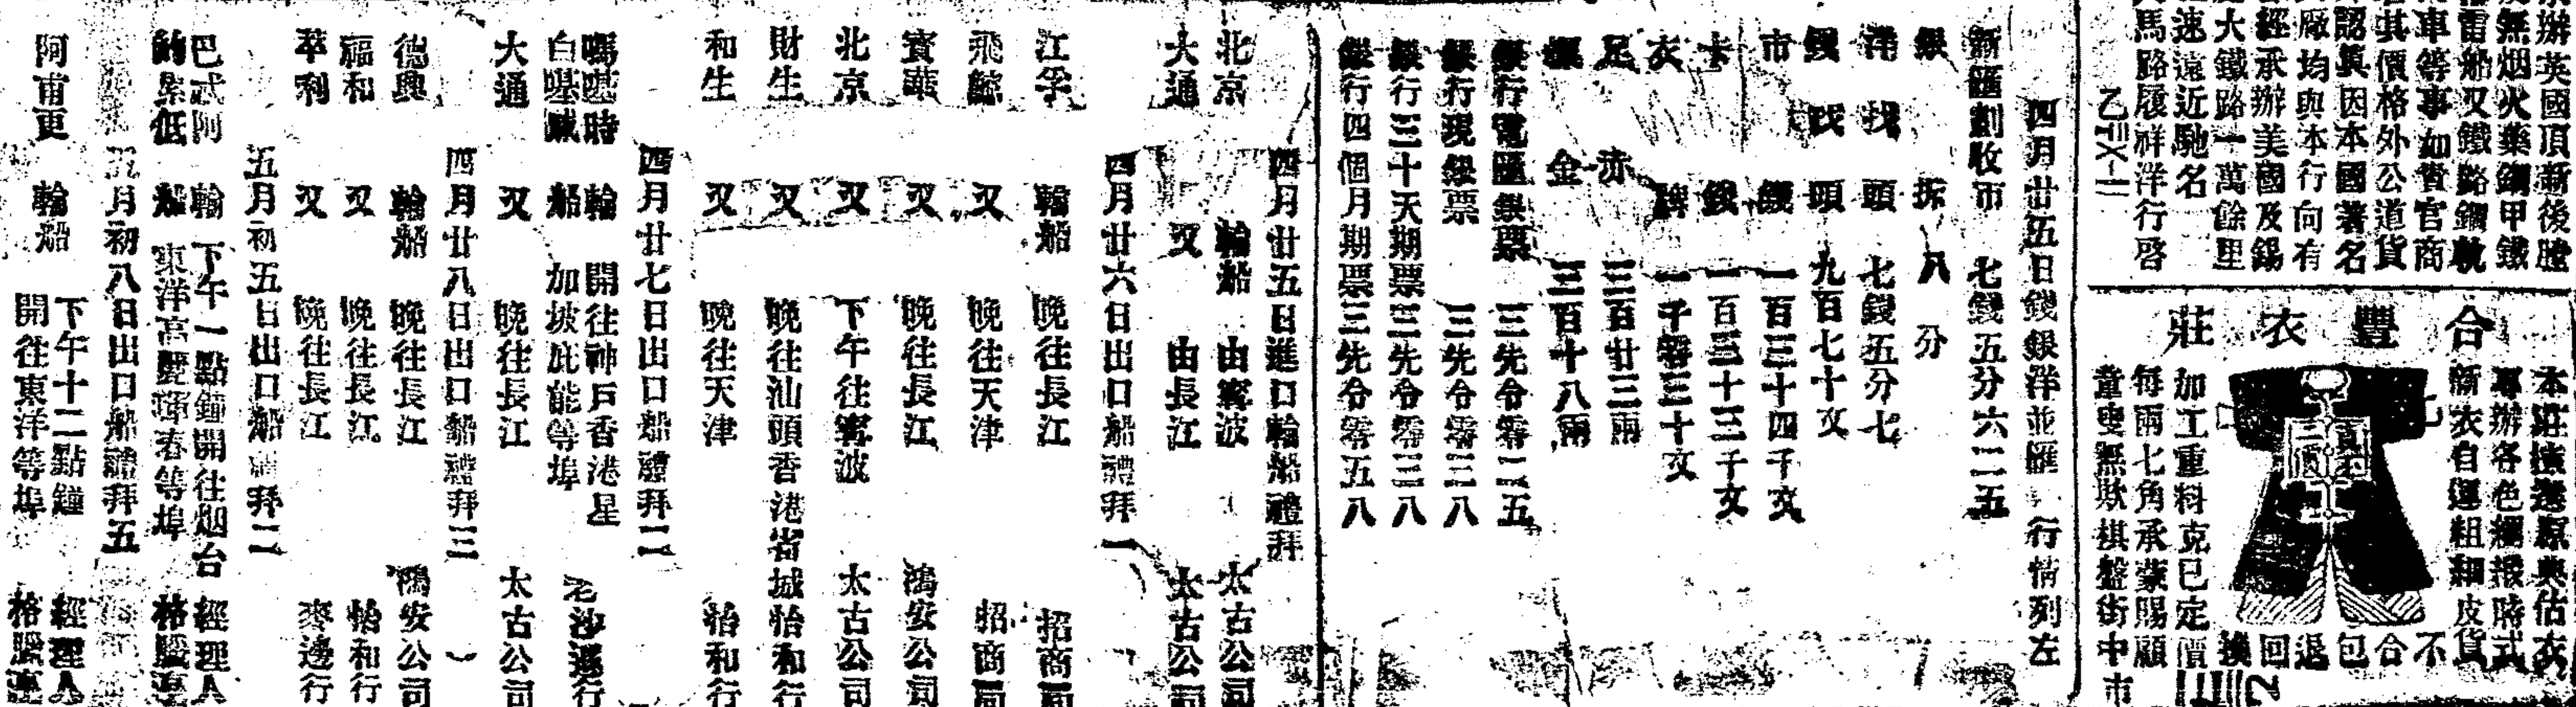 辦英國頂新後膛
無烟火藥鋼甲鐵
雷船及鐵路鋼軌
車等事如貴官商
其價格外公道貨
認眞因本國著名
廠均與本行向有
經承辦美國及錫
大鐵路一萬餘里
速遠近馳名
馬路履祥洋行啓
合豐衣莊
本莊揀選原典估衣
專辦各色綢緞時式
新衣自運粗細皮貨
不合包退回換
加工重料克已定價
每兩七角承蒙賜顧
童叟無欺棋盤街中市
四月廿五日錢銀洋並匯行情列左
新匯劃收市 七錢五分六二五
銀拆 八分
洋找頭 七錢五分七
錢找頭 九百七十文
市錢 一百三十四千文
卡錢 一百三十三千文
衣牌 一千零三十文
足赤 三百廿三兩
標金 三百十八兩
銀行電匯銀票 三先令零二五
銀行現銀票 三先令零三八
銀行三十天期票三先令零三八
銀行四個月期票三先令零五八
四月廿五日進口輪船禮拜
北京 輪船 由寧波 太古公司
大通 又 由長江 太古公司
四月廿六日出口船禮拜一
江孚 輪船 晚往長江 招商局
飛鯨 又 晚往天津 招商局
寶華 又 晚往長江 鴻安公司
北京 又 下午往寧波 太古公司
財生 又 晚往汕頭香港省城 怡和行
和生 又 晚往天津 怡和行
四月廿七日出口船禮拜二
輪 開往神戶香港星
船 加坡庇能等埠 老沙遜行
大通 又 晚往長江 太古公司
四月廿八日出口船禮拜三
德興 輪船 晚往長江 鴻安公司
福和 又 晚往長江 怡和行
萃利 又 晚往長江 麥邊行
五月初五日出口船禮拜二
巴武阿 輪 下午一點鐘開往烟台 經理人
的累低 船 東洋高麗琿春等埠 格騰
五月初八日出口船禮拜五
阿甫更 輪船 下午十二點鐘 經理人
開往東洋等埠 格騰